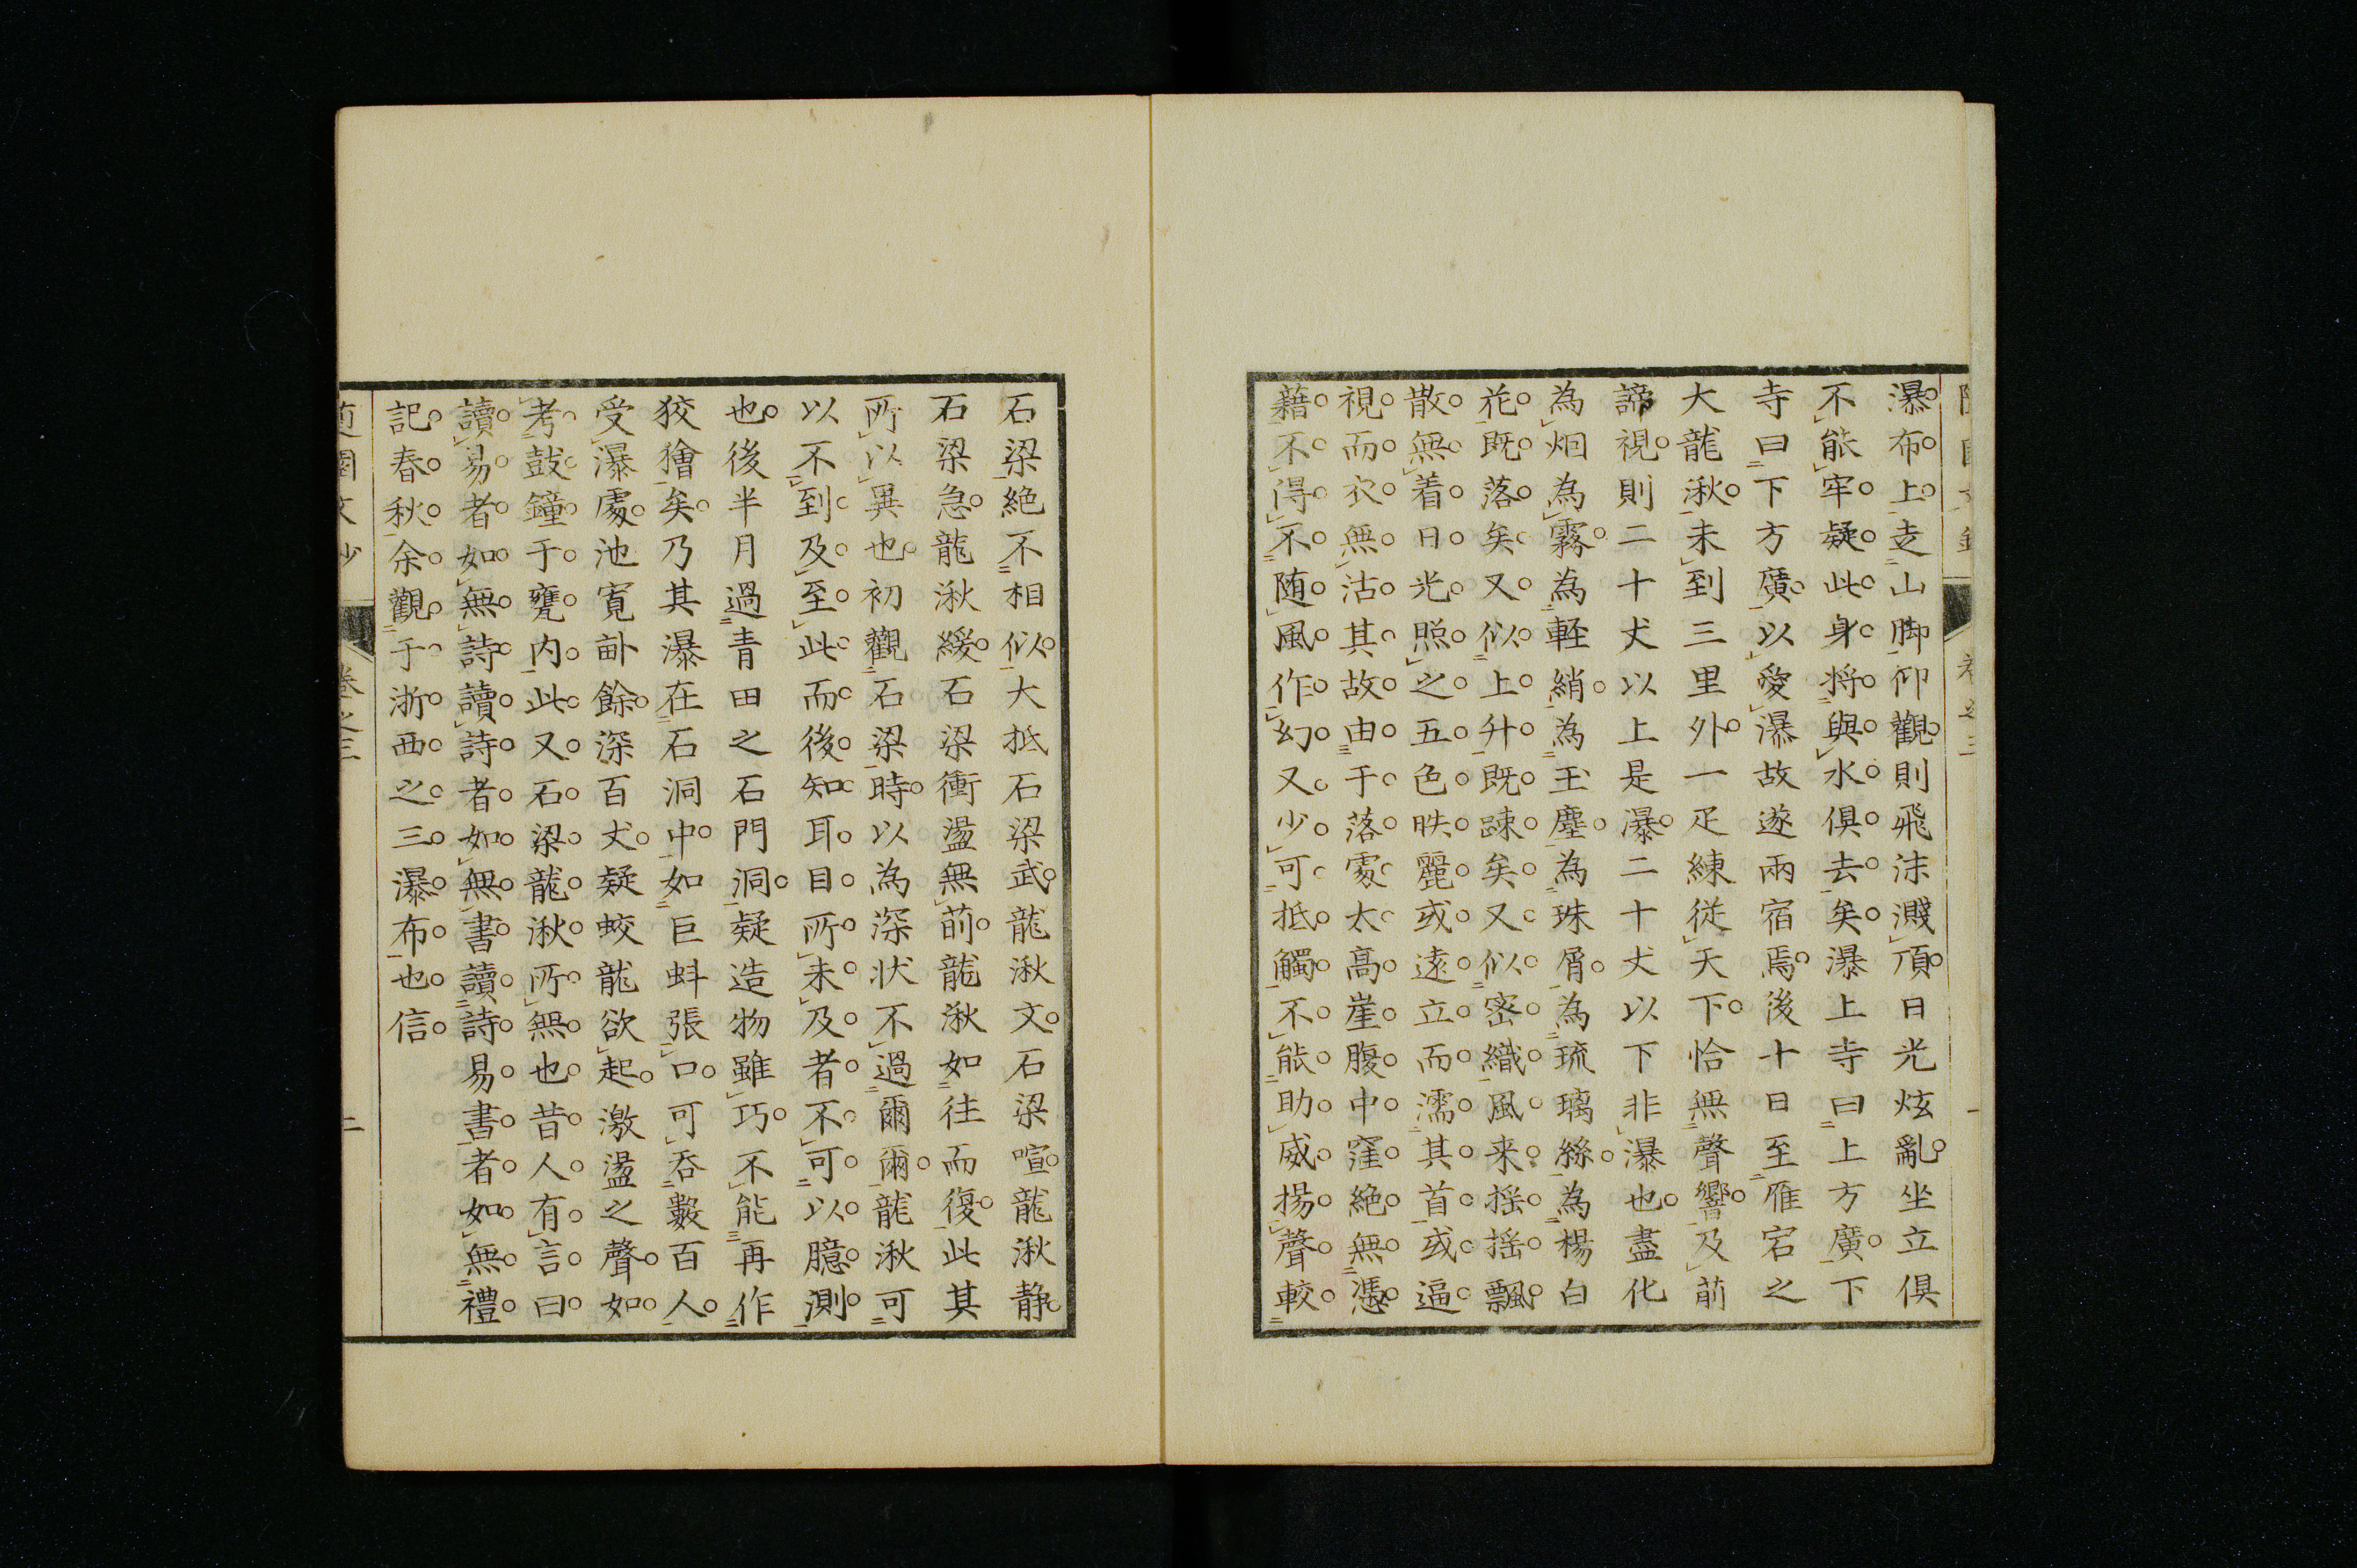 瀑布上走山脚仰觀則飛沫濺頂日光炫亂坐立俱
不能牢疑此身將與水俱去矣瀑上寺曰上方廣下
寺曰下方廣以愛瀑故遂兩宿焉後十日至雁宕之
大龍湫未到三里外一疋練從天下恰無聲響及前
諦視則二十丈以上是瀑二十丈以下非瀑也盡化
為烟為霧為輕綃為玉塵為珠屑為琉璃絲為楊白
花既落矣又似上升既踈矣又似密織風来搖搖飄
散無着日光照之五色昳麗或遠立而濡其首或逼
視而衣無沾其故由于落處太高崖腹中窪絶無憑
藉不得不随風作幻又少可抵觸不能助威揚聲較
石梁絶不相似大抵石梁武龍湫文石梁喧龍湫静
石梁急龍湫緩石梁衝盪無前龍湫如往而復此其
所以異也初觀石梁時以為深狀不過爾爾龍湫可
以不到及至此而後知耳目所未及者不可以臆測
也後半月過青田之石門洞疑造物雖巧不能再作
狡獪矣乃其瀑在石洞中如巨蚪張口可吞數百人
受瀑處池寬畝餘深百丈疑蛟龍欲起激盪之聲如
考鼓鐘于甕内此又石梁龍湫所無也昔人有言曰
讀易者如無詩讀詩者如無書讀詩易書者如無禮
記春秋余觀于浙西之三瀑布也信
随園文鈔 卷之三 二